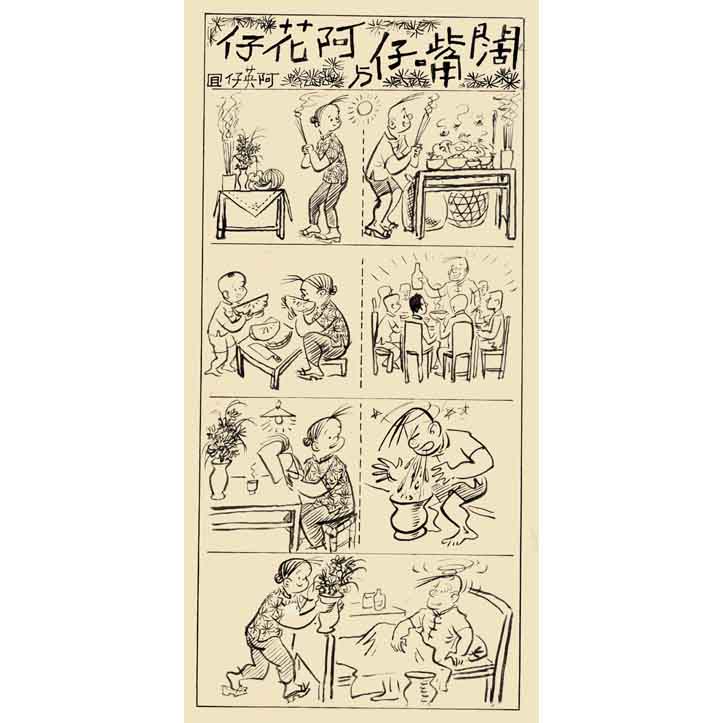 闊嘴仔与阿花仔
阿英仔